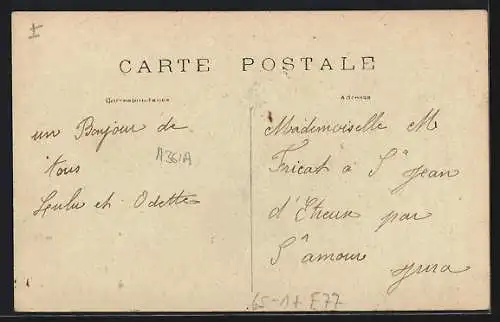 CARTE POSTALE
Correspondance
Adresse
un Bonjour de
tous
Lulu et Odette
A361A
Mademoiselle M
Fricat à St Jean
d'Etreux par
St amour
Jura
65-1+ E77